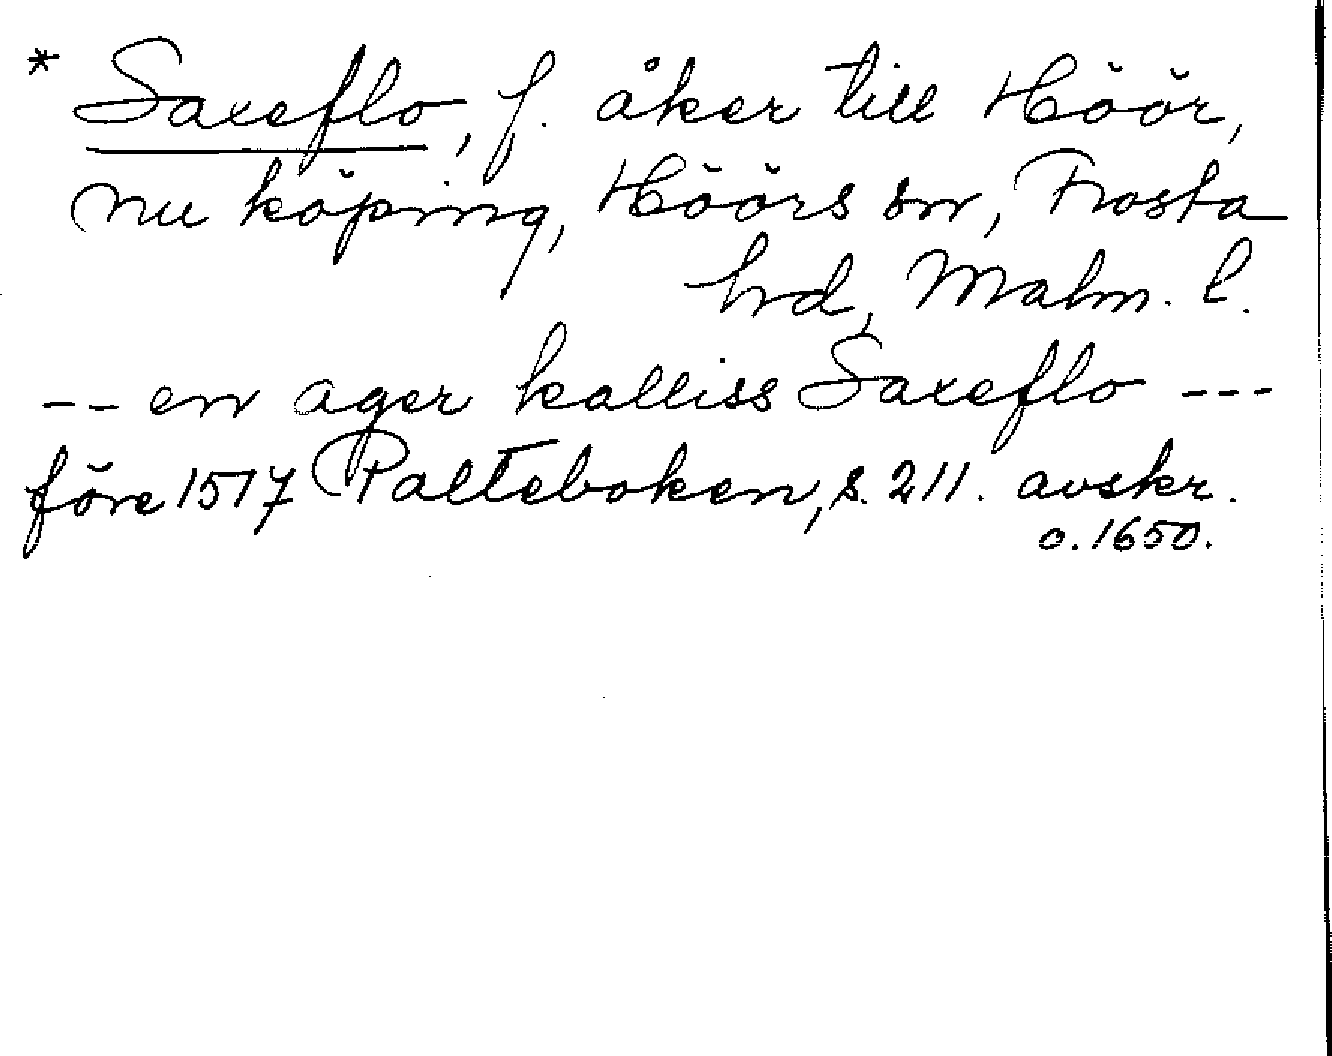 * Saxeflo, f. åker till Höör,
nu köping, Höörs sn, Frosta
hrd, Malm. l.
-- en ager kalliss Saxeflo ---
före 1517 Palteboken, s. 211. avskr.
o. 1650.